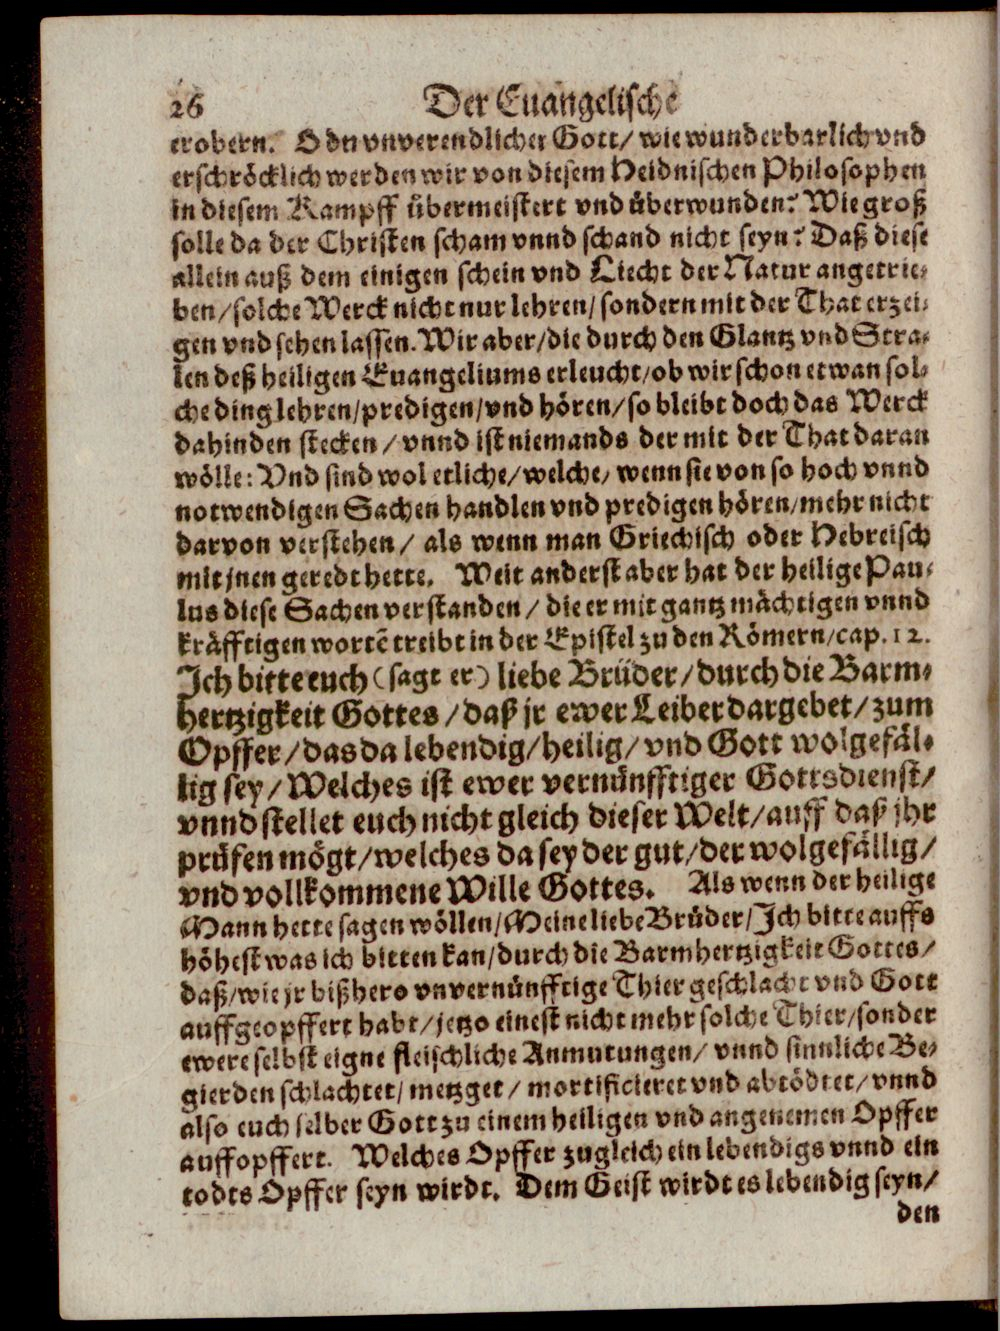 26 Der Euangelische
erobern. O du vnverendlicher Gott/ wie wunderbarlich vnd
erschröcklich werden wir von diesem Heidnischen Philosophen
in diesem Kampff übermeistert vnd überwunden? Wie groß
solle da der Christen scham vnnd schand nicht seyn? Daß diese
allein auß dem einigen schein vnd Liecht der Natur angetrie-
ben/ solche Werck nicht nur lehren/ sondern mit der That erzei-
gen vnd sehen lassen. Wir aber/ die durch den Glantz vnd Stra-
len deß heiligen Euangeliums erleucht/ ob wir schon etwan sol-
che ding lehren/ predigen/ vnd hören/ so bleibt doch das Werck
dahinden stecken/ vnnd ist niemands der mit der That daran
wölle: Vnd sind wol etliche/ welche/ wenn sie von so hoch vnnd
notwendigen Sachen handlen vnd predigen hören/ mehr nicht
darvon verstehen/ als wenn man Griechisch oder Hebreisch
mit jnen geredt hette. Weit anderst aber hat der heilige Pau-
lus diese Sachen verstanden/ die er mit gantz mächtigen vnnd
kräfftigen wortē treibt in der Epistel zu den Römern/ cap. 12.
Ich bitte euch (sagt er) liebe Brüder/ durch die Barm-
hertzigkeit Gottes/ daß jr ewer Leiber dargebet/ zum
Opffer/ das da lebendig/ heilig/ vnd Gott wolgefäl-
lig sey/ Welches ist ewer vernünfftiger Gottsdienst/
vnnd stellet euch nicht gleich dieser Welt/ auff daß jhr
prüfen mögt/ welches da sey der gut/ der wolgefällig/
vnd vollkommene Wille Gottes. Als wenn der heilige
Mann hette sagen wöllen/ Meine liebe Brüder/ Ich bitte auffs
höhest was ich bitten kan/ durch die Barmhertzigkeit Gottes/
daß/ wie jr bißhero vnvernünfftige Thier geschlacht vnd Gott
auffgeopffert habt/ jetzo einest nicht mehr solche Thier/ sonder
ewere selbst eigne fleischliche Anmutungen/ vnnd sinnliche Be-
gierden schlachtet/ metzget/ mortificieret vnd abtödtet/ vnnd
also euch selber Gott zu einem heiligen vnd angenemen Opffer
auffopffert. Welches Opffer zugleich ein lebendigs vnnd ein
todts Opffer seyn wirdt. Dem Geist wirdt es lebendig seyn/
den